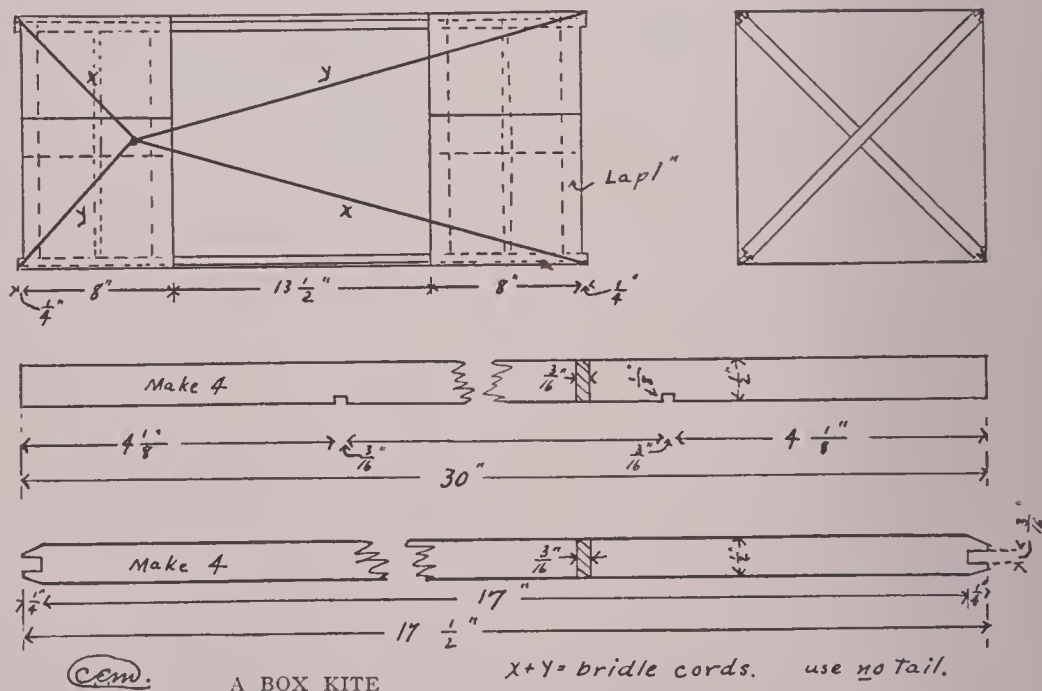 x
y
y
x
Lap 1"
1/4" 8" 13 1/2" 8" 1/4"
Make 4 3/16" 1/8" 1/2"
4 1/8" 3/16" 3/16" 4 1/8"
30"
Make 4 3/16" 1/2" 3/16"
1/4" 17" 1/4"
17 1/2"
cem. A BOX KITE x+y= bridle cords. use no Tail.